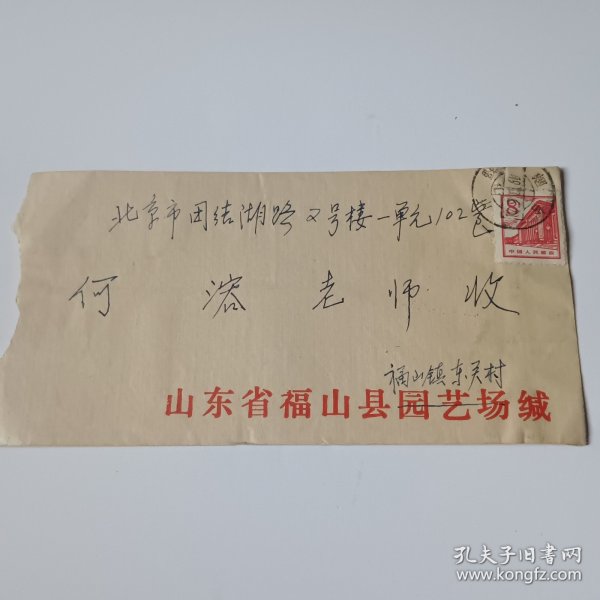 北京市团结湖路2号楼一单元102号
何溶老师收
福山镇东关村
山东省福山县园艺场缄
8
中国人民邮政
孔夫子旧书网
www.kongfz.com